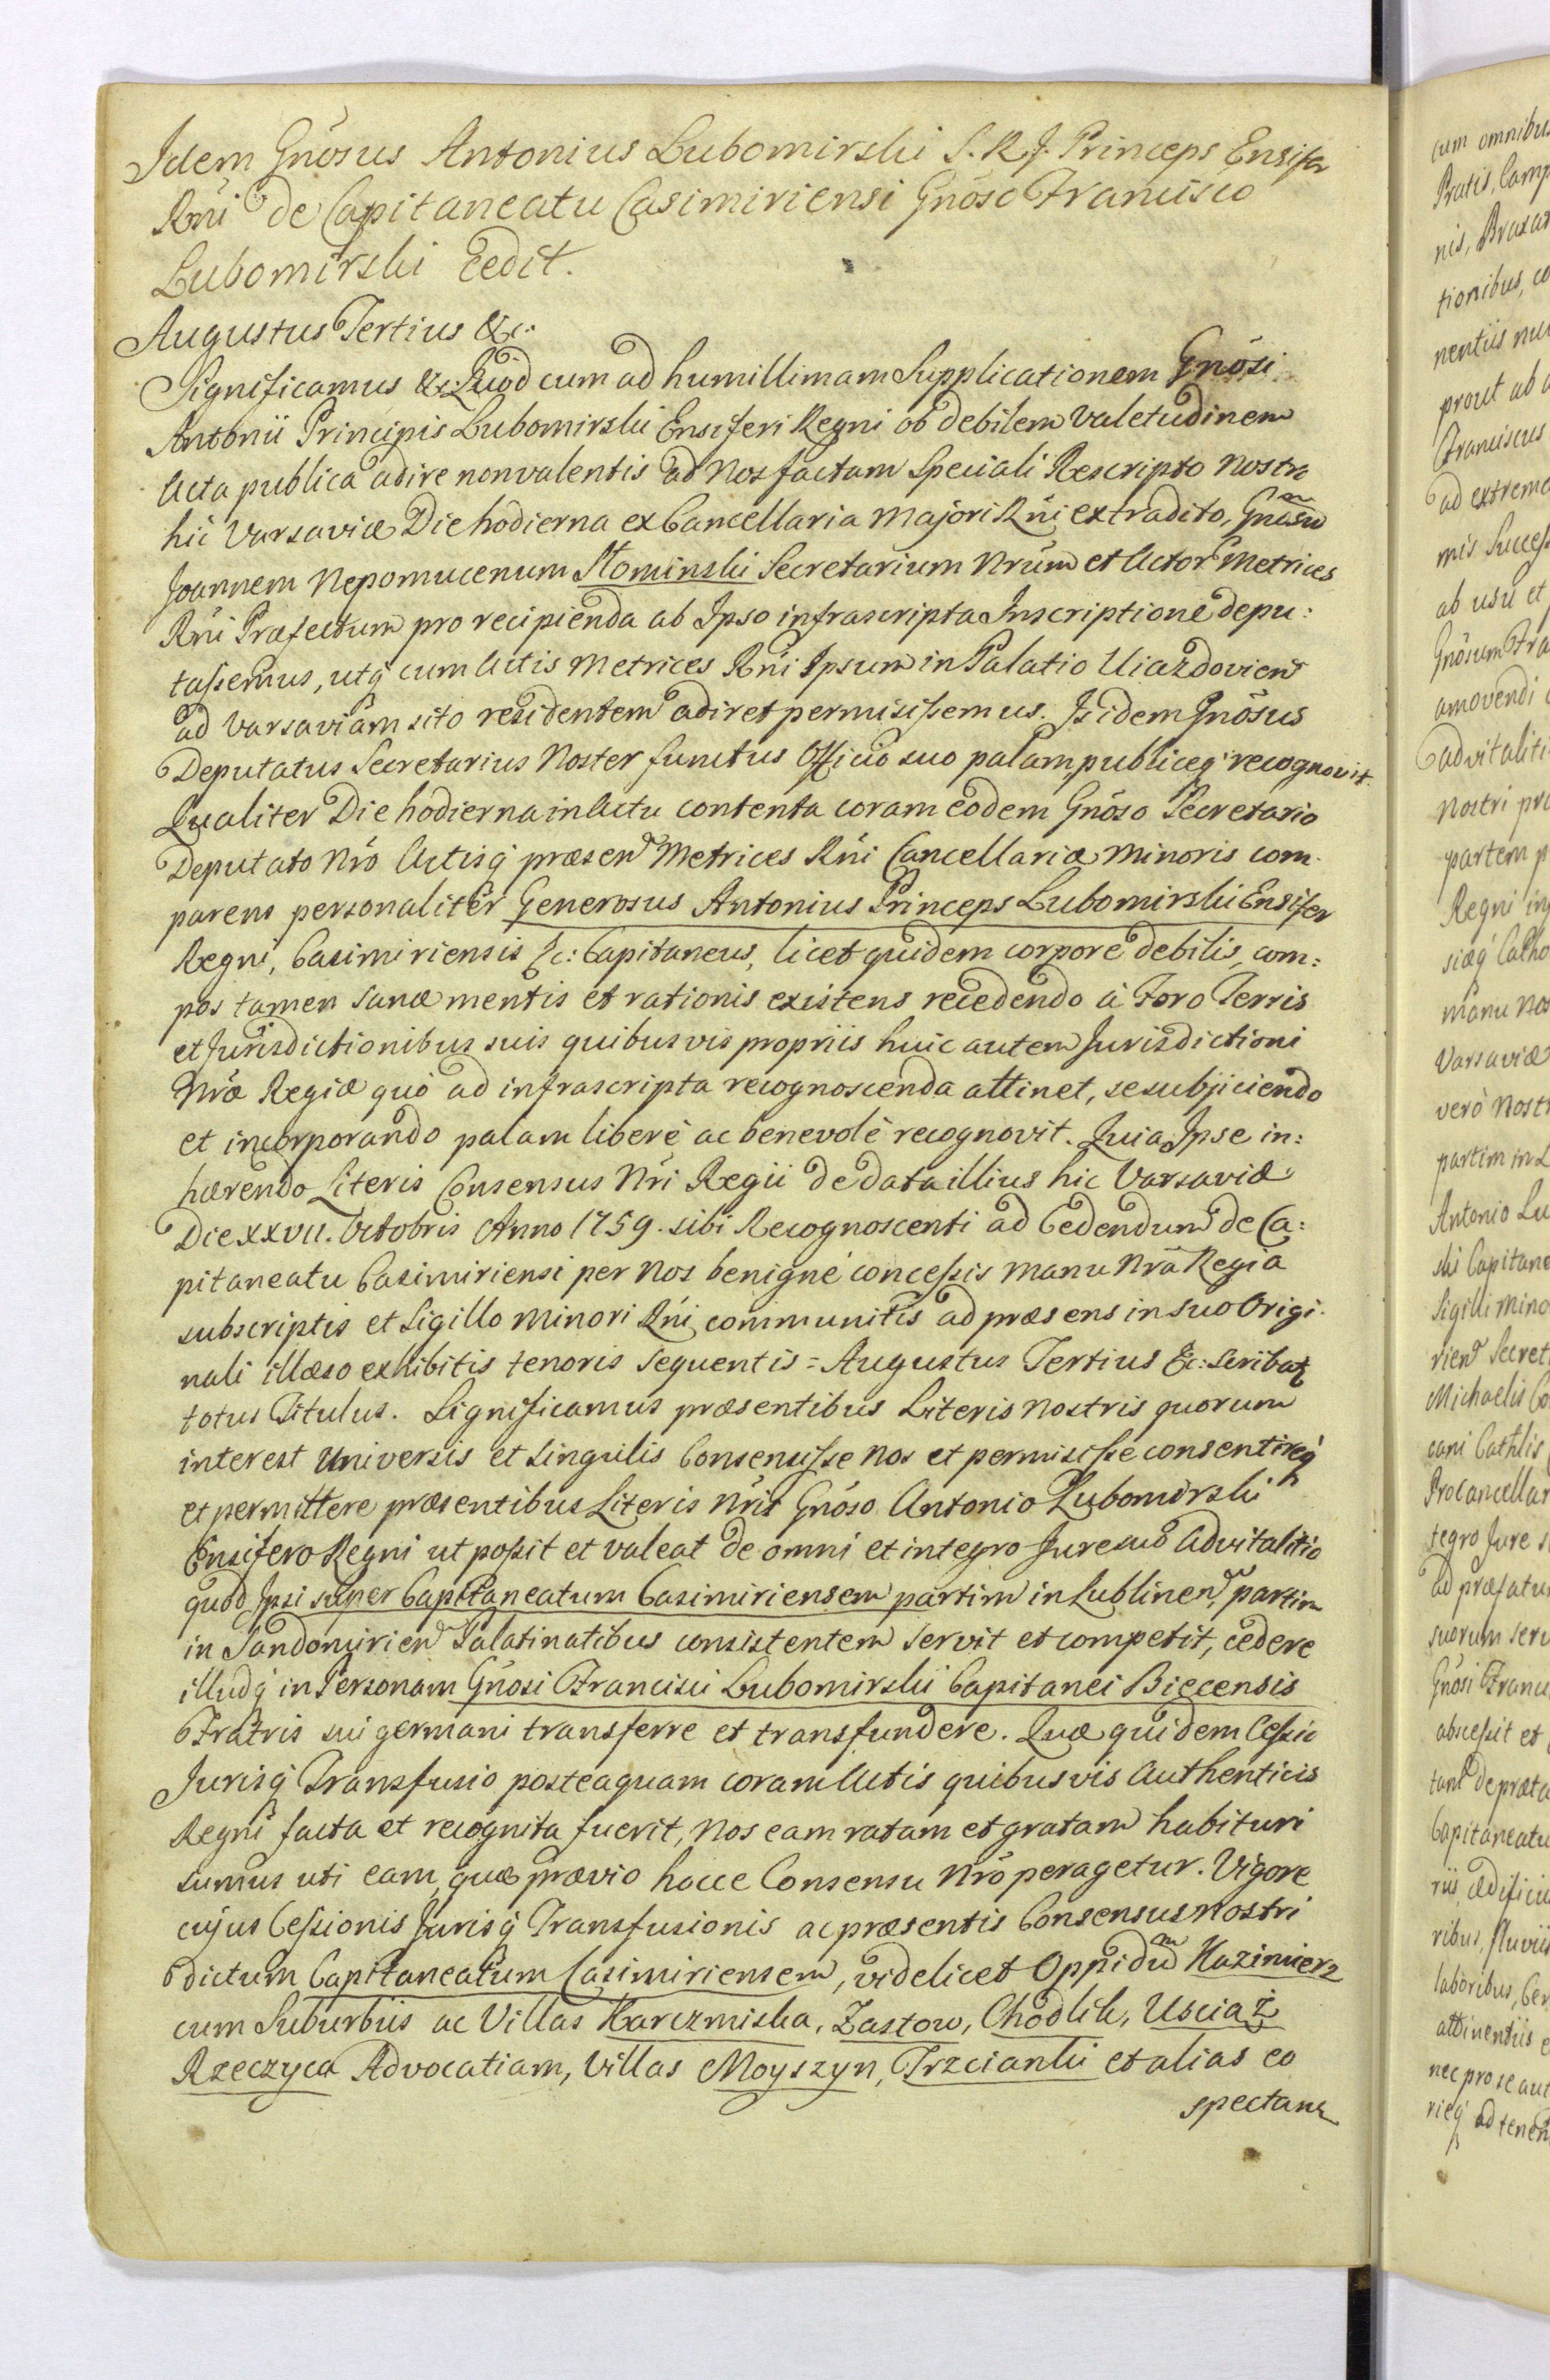 Idem Gnōsus Antonius Lubomirski S. R. J. Princeps Ensifer
Rni de Capitaneatu Casimiriensi Gnōso Francisco
Lubomirski Cedit.
Augustus Tertius &c.
Significamus &c. Quod cum ad humillimam Supplicationem Gnōsi
Antonii Principis Lubomirski Ensiferi Regni ob debilem valetudinem
Acta publica adire non valentis ad Nos factam Speciali Rescripto Nostro
hic Varsaviæ Die hodierna ex Cancellaria Majori Rńi extradito, Gnosum
Joannem Nepomucenum Słominski Secretarium Nrum et Actor Metrices
Rńi Præfectum pro recipienda ab Ipso infrascripta Inscriptione depu:
tassemus, utq cum Actis Metrices Rńi Ipsum in Palatio Uiazdovien
ad Varsaviam sito residentem adiret permisissemus. Is idem Gnōsus
Deputatus Secretarius Noster functus Officio suo palam publiceq recognovit.
Qualiter Die hodierna in Actu contenta coram eodem Gnōso Secretario
Deputato Nro Actisq præsen Metrices Rńi Cancellariæ Minoris com
parens personaliter Generosus Antonius Princeps Lubomirski Ensifer
Regni, Casimiriensis &c: Capitaneus, licet quidem corpore debilis, com:
pos tamen sanæ mentis et rationis existens recedendo à Foro Terris
et Jurisdictionibus suis quibusvis propriis huic autem Jurisdictioni
Nræ Regiæ quò ad infrascripta recognoscenda attinet, se subjiciendo
et incorporando palam liberè ac benevolè recognovit. Quia Ipse in:
hærendo Literis Consensus Nri Regii de data illius hic Varsaviæ
Die XXVII. Octobris Anno 1759. sibi Recognoscenti ad Cedendum de Ca:
pitaneatu Casimiriensi per Nos benignè concessis manu Nra Regia
subscriptis et Sigillo Minori Rńi communitis ad præsens in suo Origi
nali illæso exhibitis tenoris sequentis = Augustus Tertius &c: Scribatr
totus Titulus. Significamus præsentibus Literis Nostris quorum
interest Universis et Singulis Consensisse Nos et permisisse consentireq
et permittere præsentibus Literis Nris Gnōso Antonio Lubomirski
Ensifero Regni ut possit et valeat de omni et integro Jure suo Advitalitio
quod Ipsi super Capitaneatum Casimiriensem partim in Lublinen, partim
in Sandomirien Palatinatibus consistentem servit et competit, cedere
illudq in Personam Gnōsi Francisci Lubomirski Capitanei Biecensis
Fratris sui germani transferre et transfundere. Quæ quidem Cessio
Jurisq Transfusio posteaquam coram Actis quibusvis Authenticis
Regni facta et recognita fuerit, Nos eam ratam et gratam habituri
sumus uti eam, quæ prævio hocce Consensu Nro peragetur. Vigore
cujus Cessionis Jurisq Transfusionis ac præsentis Consensus Nostri
dictum Capitaneatum Casimiriensem, videlicet Oppidum Kazimierz
cum Suburbiis ac Villas Karczmiska, Zastow, Chodlik, Usciaż
Rzeczyca Advocatiam, Villas Moyszyn, Trzcianki et alias eo
spectan
cum omnibus
Pratis, Camp
nis, Braxa
tionibus, co
nentiis
prout ab
Franciscus
ad extrema
mis Success
ab usu et
Gnōsum Fra
amovendi
advitaliti
Nostri pro
partem p
Regni in
siæq Catho
manu Nos
Varsaviæ
verò Nostr
partim in L
Antonio Lu
ski Capitane
Sigilli Mino
rien Secret
Michaelis Co
cani Cathlis
Procancellar
tegro Jure s
ad præfatu
suorum serv
Gnōsi Franci
abscessit et
tans de præta
Capitaneatu
riis, ædificii
ribus, fluviis
laboribus, Cen
attinentiis e
nec pro se aut
rieq ad tenen